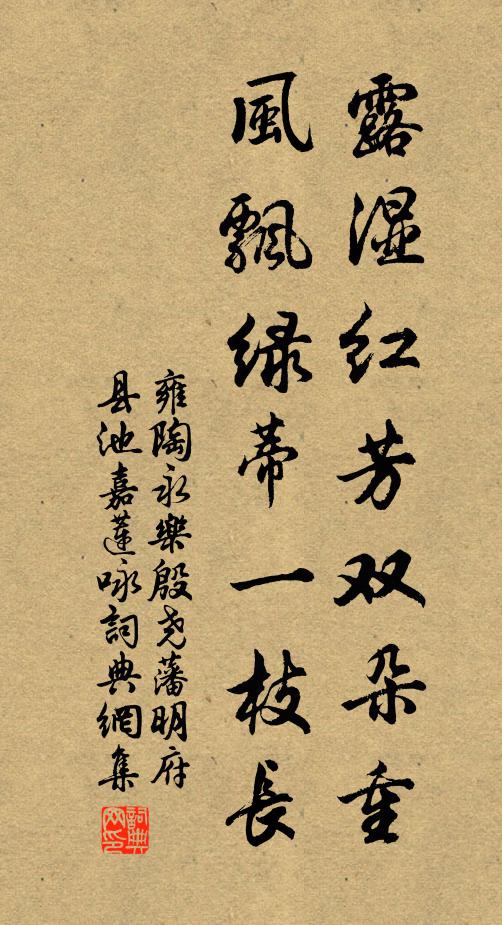 露湿红芳双朵重
風飄绿蒂一枝長
雍陶永樂殷尧藩明府
县池嘉蓮咏詞典網集
詞典网印